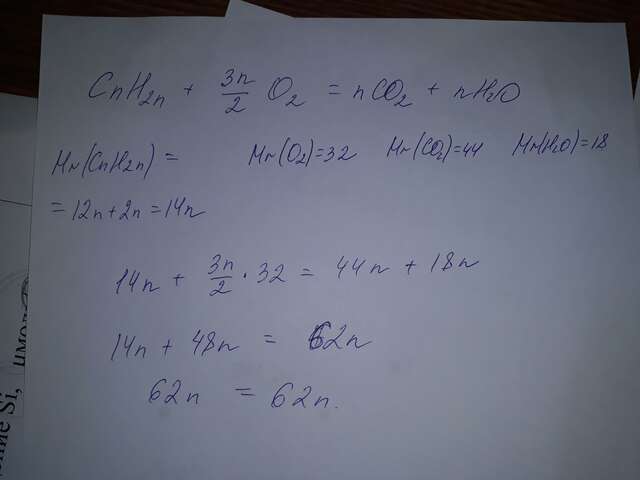 CnH2n + 3n/2 O2 = nCO2 + nH2O
Mr(CnH2n) = Mr(O2)=32 Mr(CO2)=44 Mr(H2O)=18
= 12n+2n=14n
14n + 3n/2 · 32 = 44n + 18n
14n + 48n = 62n
62n = 62n.
Si,